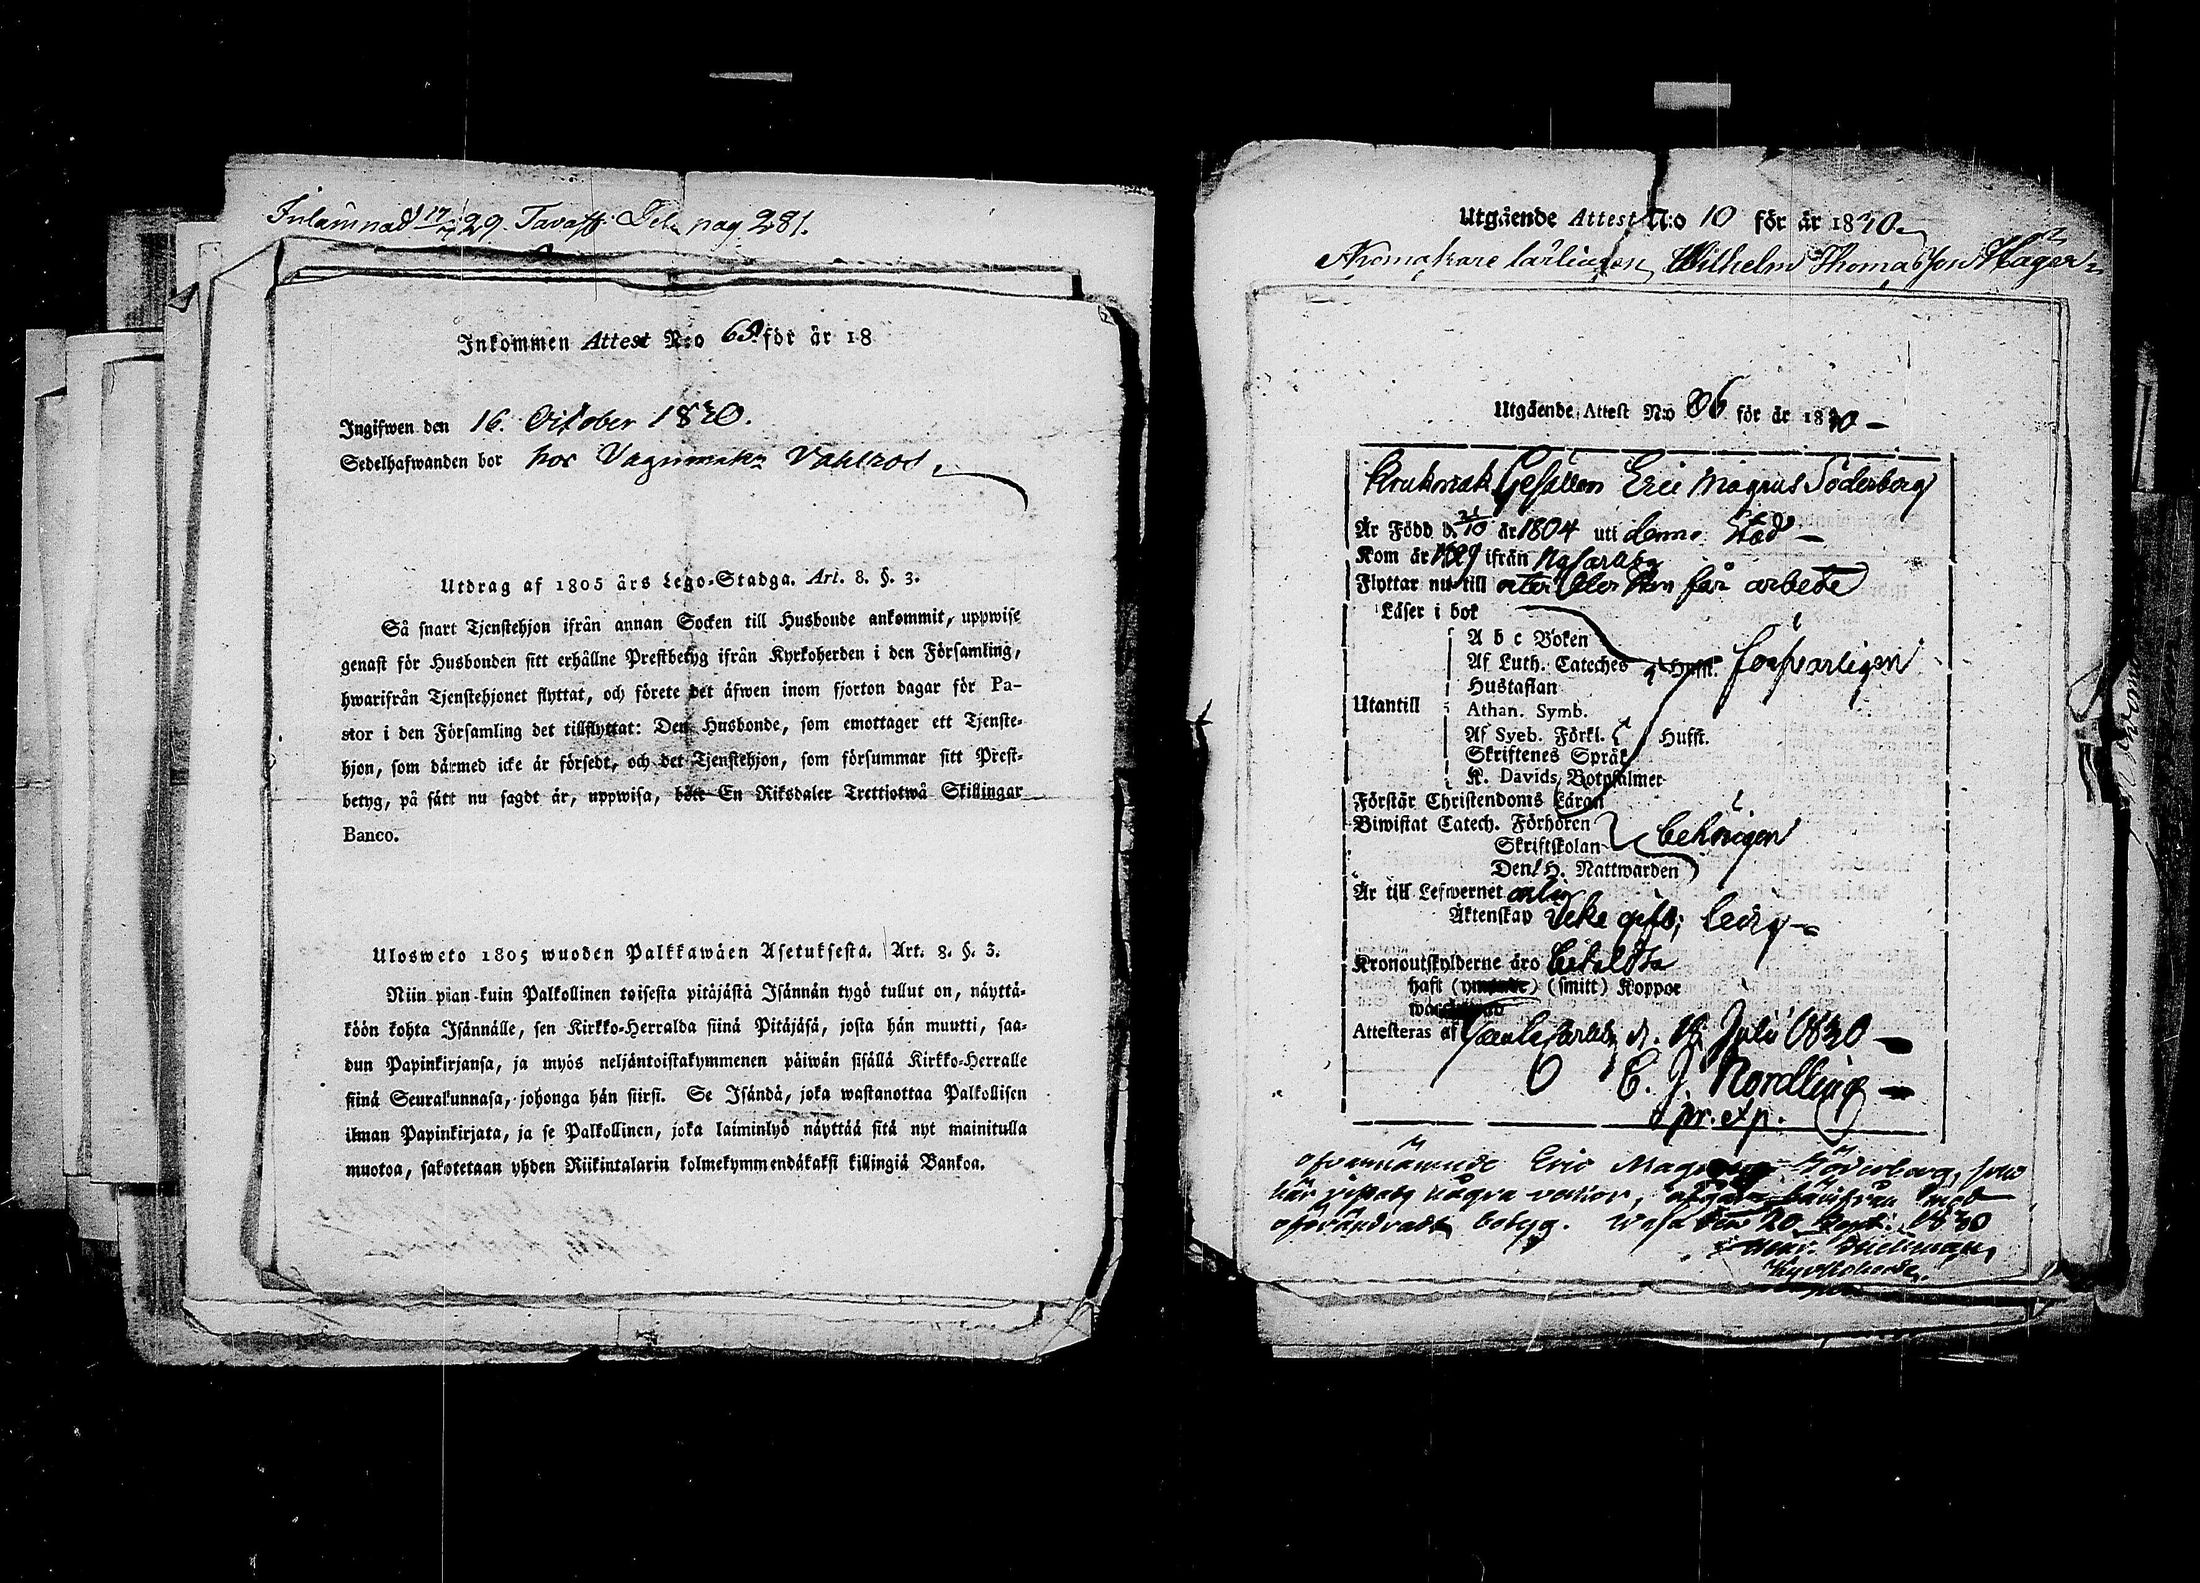 Inlämnad 17/4 29. Tavast: pag 281.
Inkommen Attest N:o 69. för år 18
Ingifwen den 16. October 1830.
Sedelhafwanden bor hos Vagnmak:
Utdrag af 1805 års Lego-Stadga. Art. 8. §. 3.
Så snart Tjenstehjon ifrån annan Socken till Husbonde ankommit, uppwise
genast för Husbonden sitt erhållne Prestbetyg ifrån Kyrkoherden i den Församling,
hwarifrån Tjenstehjonet flyttat, och förete det äfwen inom fjorton dagar för Pa-
stor i den Församling det tillflyttat: Den Husbonde, som emottager ett Tjenste-
hjon, som därmed icke är försedt, och det Tjenstehjon, som försummar sitt Prest-
betyg, på sätt nu sagdt är, uppwisa, böte En Riksdaler Trettiotwå Skillingar
Banco.
Ulosweto 1805 wuoden Palkkawäen Asetuksesta. Art. 8. §. 3.
Niin pian kuin Palkollinen toisesta pitäjästä Isännän tygö tullut on, näyttä-
köön kohta Isännälle, sen Kirkko-Herralda siinä Pitäjäsä, josta hän muutti, saa-
dun Papinkirjansa, ja myös neljäntoistakymmenen päiwän sisällä Kirkko-Herralle
siinä Seurakunnasa, johonga hän siirsi. Se Isändä, joka wastanottaa Palkollisen
ilman Papinkirjata, ja se Palkollinen, joka laiminlyö näyttää sitä nyt mainitulla
muotoa, sakotetaan yhden Riikintalarin kolmekymmendäkaksi killingiä Bankoa.
Utgående Attest N:o 10 för år 1830.
Skomakare lärlingen Wilhelm Thomasson
Utgående Attest N:o 86 för år 1830
Krukmak Gesällen Eric Magnus Söderborg
Är Född d. 21/10 år 1804 uti denna Stad
Kom år 1829 ifrån Nycarleby
Flyttar nu till åter eller han får arbete
Läser i bok
A b c Boken
Af Luth. Cateches Hufst. försvarligen
Hustaflan
Utantill Athan. Symb.
Af Sveb. Förkl. Hufst.
Skriftenes Språk
K. Davids Botpsalmer
Förstår Christendoms Läran
Biwistat Catech. Förhören behörigen
Skriftskolan
Den H. Nattwarden
Är till Lefwernet ärlig
Äktenskap icke gift; ledig
Kronoutskylderne äro betalda
haft (smitt) Koppor
Attesteras af Gamlacarleby d. 12 Julii 1830
E. J. Nordling
pr. exp.
ofvannämnde Eric Magnus Söderborg, som
här vistats några veckor, afgår härifrån med
oförändradt betyg. Wasa den 20 Sept: 1830
Kyrkoherde.